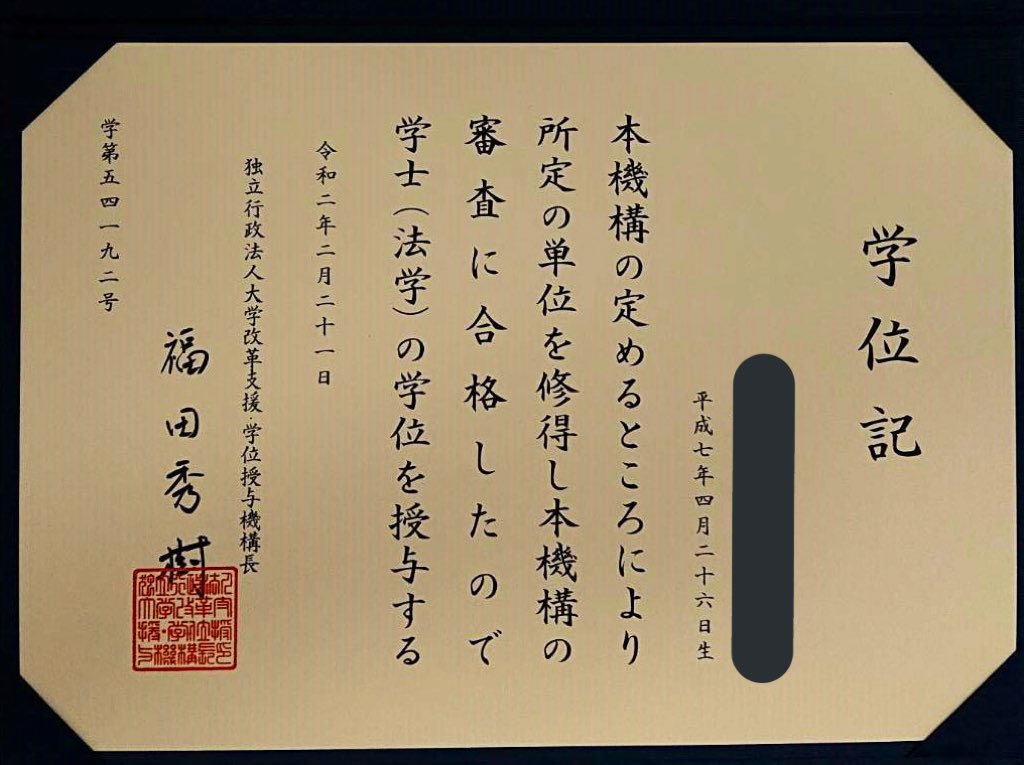 学位記
平成七年四月二十六日生
本機構の定めるところにより
所定の単位を修得し本機構の
審査に合格したので
学士（法学）の学位を授与する
令和二年二月二十一日
独立行政法人大学改革支援・学位授与機構長
福田秀樹
学第五四一九二号